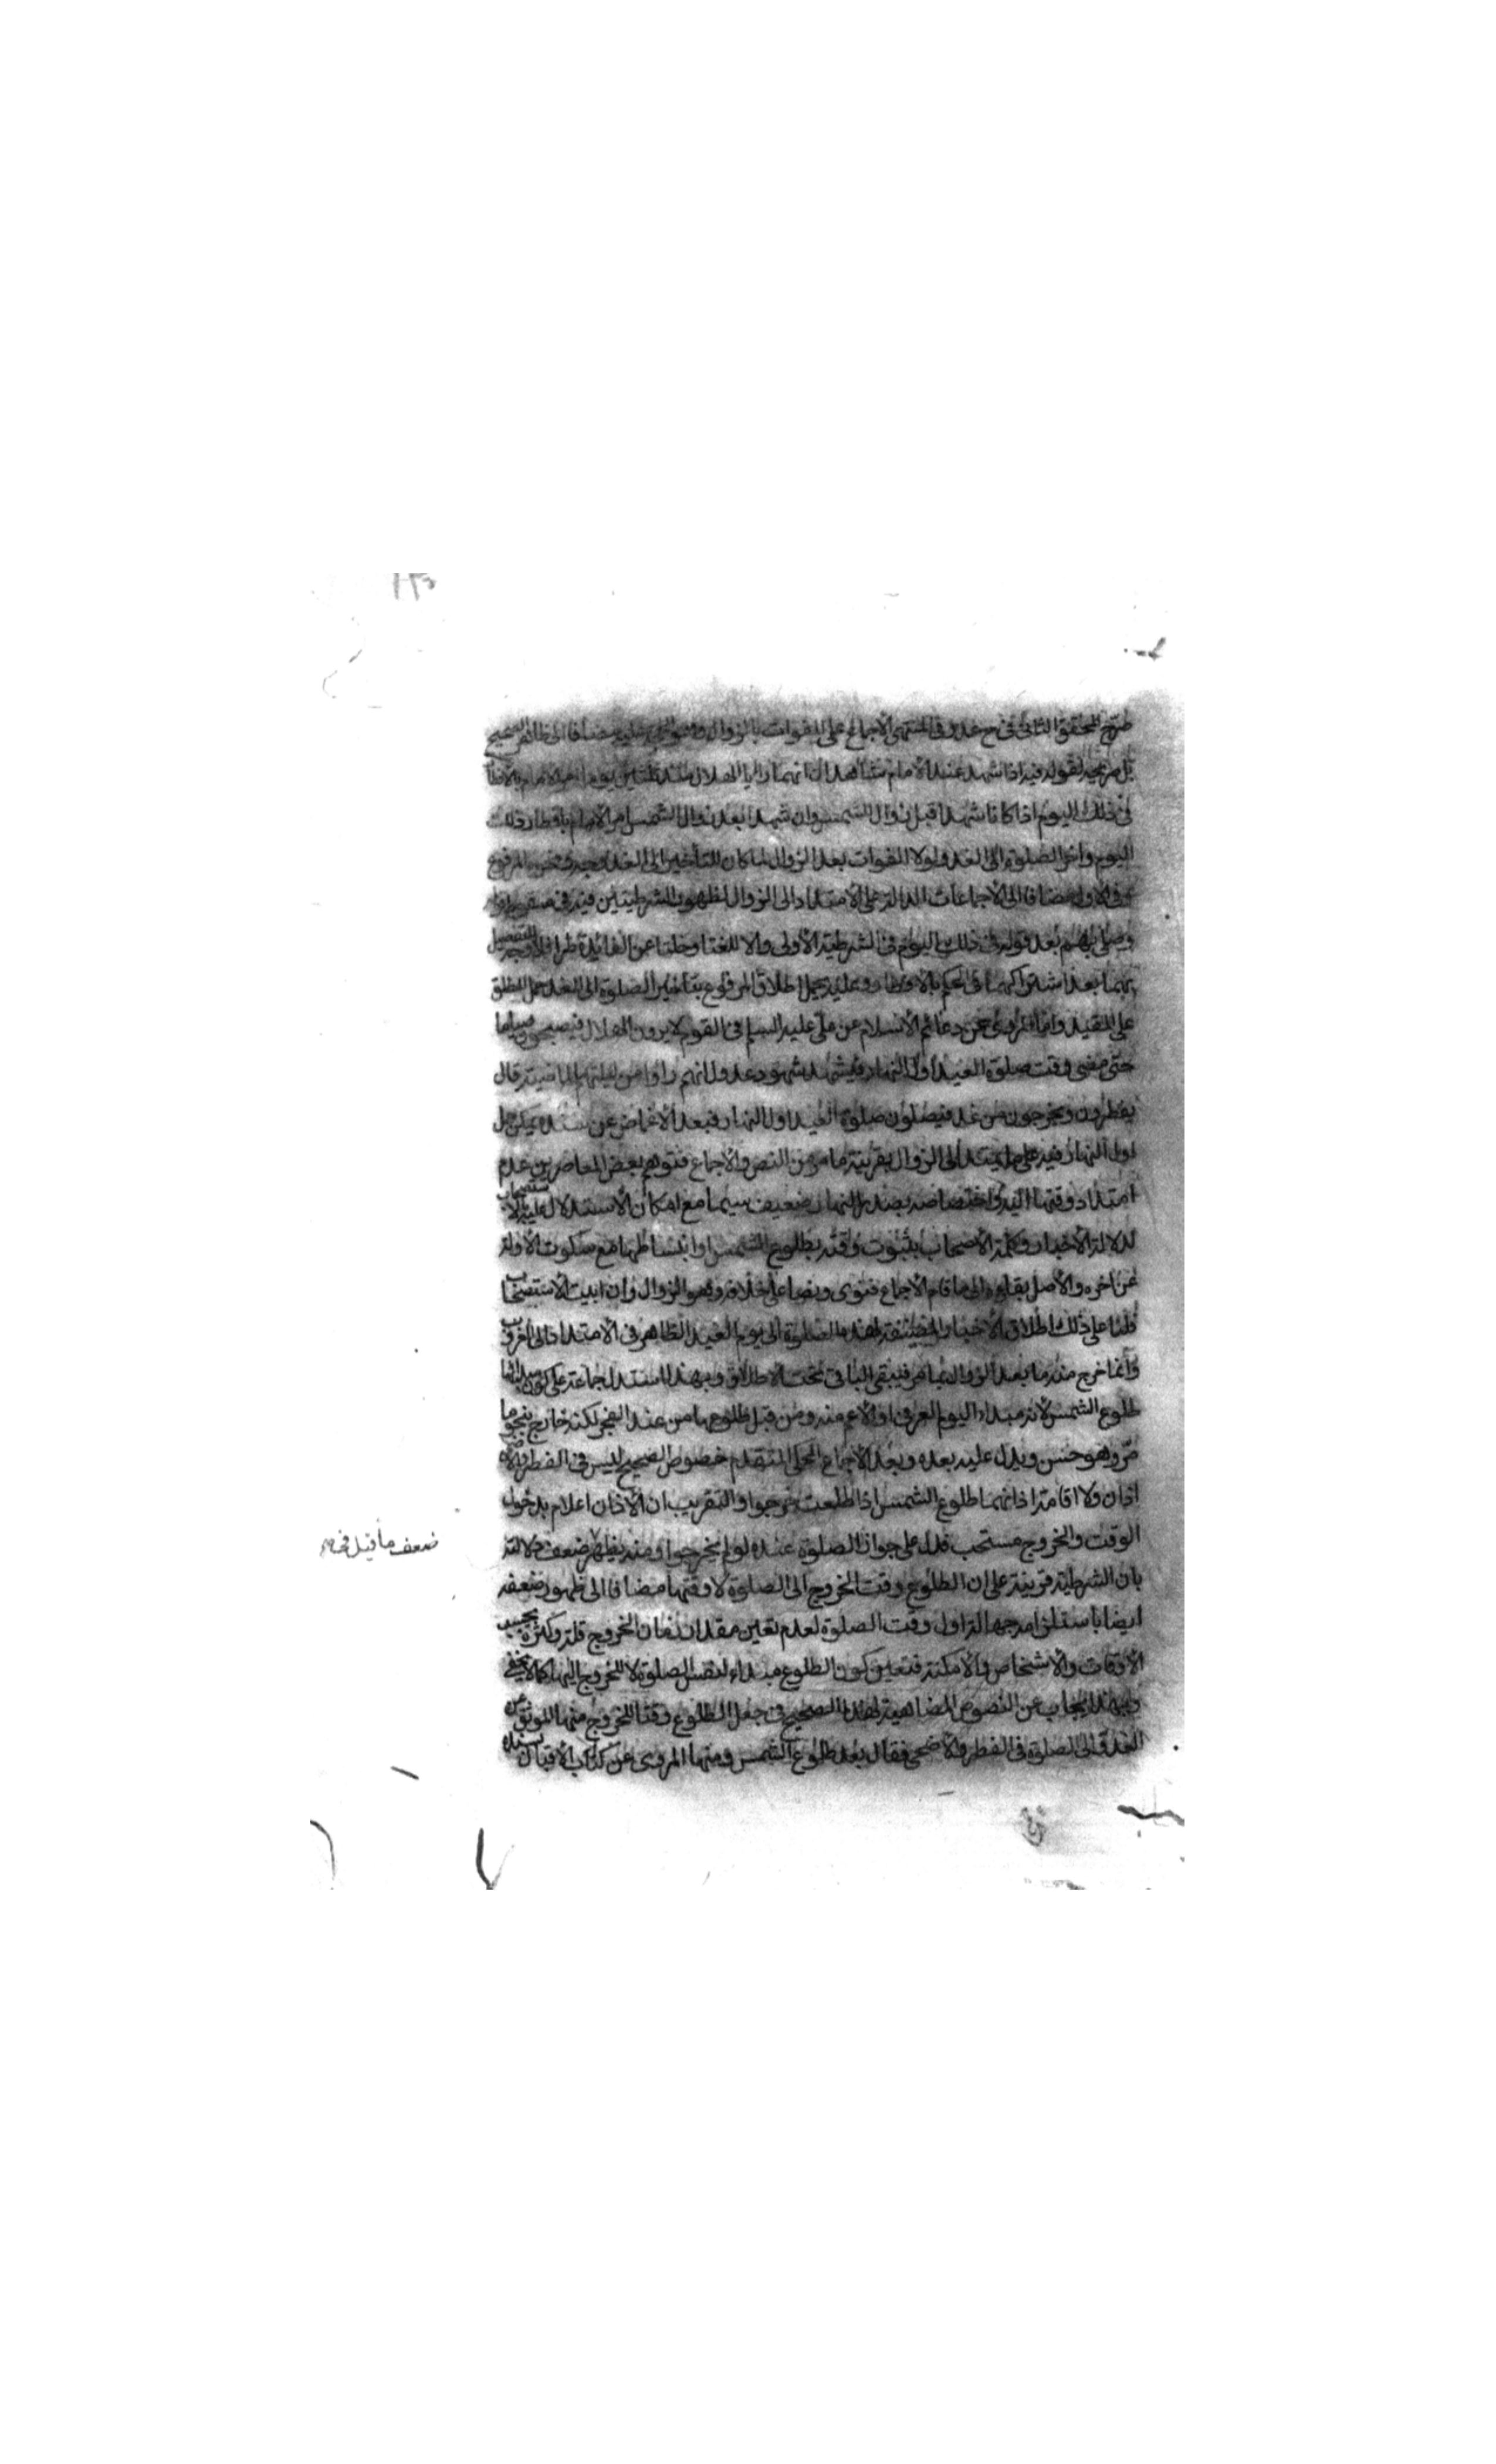 صرّح المحقق الثانى فى ح عد وفى المنتهى الاجماع على الفوات بالزوال مضافا الى ظاهر الصحيح
بل صريحه لقوله فيه اذا شهد عند الامام شاهدان انهما رايا الهلال منذ ثلثين يوما امر الامام بالافطار
فى ذلك اليوم اذا كانا شهدا قبل زوال الشمس وان شهدا بعد زوال الشمس امر الامام بافطار ذلك
اليوم واخر الصلوة الى الغد ولولا الفوات بعد الزوال لما كان للتأخير الى الغد وجه ونحوه المرفوع
وفى الاول مضافا الى الاجماعات الدالة على الامتداد الى الزوال لظهور الشرطيتين فيه فى
وصلى بهم بعد قوله فى ذلك اليوم فى الشرطية الاولى والا للغتا وخلتا عن الفائدة طرا فلا وجه للتفصيل
بينهما بعد اشتراكهما فى الحكم بالافطار وعليه يحمل اطلاق المرفوع بتأخير الصلوة الى الغد حمل المطلق
على المقيد واما المروى عن دعائم الاسلام عن على عليه السلم فى القوم لا يرون الهلال فيصبحون صياما
حتى مضى وقت صلوة العيد اول النهار فيشهد شهود عدول انهم راوا من ليلتهم الماضية قال
يفطرون ويخرجون من غد فيصلون صلوة العيد اول النهار فبعد الاغماض عن سنده يمكن حمل
اول النهار فيه على ما يمتد الى الزوال بقرينة ما مر من النص والاجماع فتوهم بعض المعاصرين عدم
امتداد وقتها اليه واختصاصه بصدر النهار ضعيف سيما مع امكان الاستدلال عليه بالاستصحاب
لدلالة الاخبار وكلمة الاصحاب بثبوت وقته بطلوع الشمس او انبساطها مع سكوت الاولة
عن اخره والاصل بقاوه الى ما قام الاجماع فتوى ونصا على خلافه وهو الزوال وان ابيت الاستصحاب
قلنا على ذلك اطلاق الاخبار المضيفة لهذه الصلوة الى يوم العيد الظاهر فى الامتداد الى الغروب
وانما خرج منه ما بعد الزوال بما مر فيبقى الباقى تحت الاطلاق وبهذا استدل جماعة على كون مبدئها
طلوع الشمس لانه مبداء اليوم العرفى او الاعم منه ومن قبل طلوعها من عند الفجر لكنه خارج بنحو ما
مرّ وهو حسن ويدل عليه بعده وبعد الاجماع المحكى المتقدم خصوص الصحيح ليس فى الفطر والاضحى
اذان ولا اقامة اذانهما طلوع الشمس اذا طلعت خرجوا والتقريب ان الاذان اعلام بدخول
الوقت والخروج مستحب فدل على جواز الصلوة عنده لو لم يخرجوا ومنه يظهر ضعف دلالته
بان الشرطية قرينة على ان الطلوع وقت الخروج الى الصلوة لا وقتها مضافا الى ظهور ضعفه
ايضا باستلزامه جهالة اول وقت الصلوة لعدم تعين مقدار زمان الخروج قلة وكثرة بحسب
الاوقات والاشخاص والامكنة فتعين كون الطلوع مبداء لنفس الصلوة لا للخروج اليها كما لا يخفى
وبهذا يجاب عن النصوص المضاهية لهذا الصحيح فى جعل الطلوع وقتا للخروج منها الموثق عن
الغدو الى الصلوة فى الفطر والاضحى فقال بعد طلوع الشمس ومنها المروى عن كتاب الاقبال بسنده
ضعف ما قيل فى